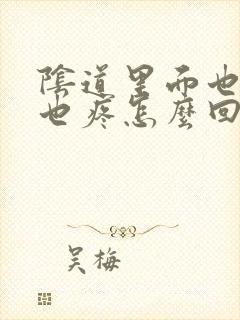 陰道里面也
也疼怎麼回
吴梅